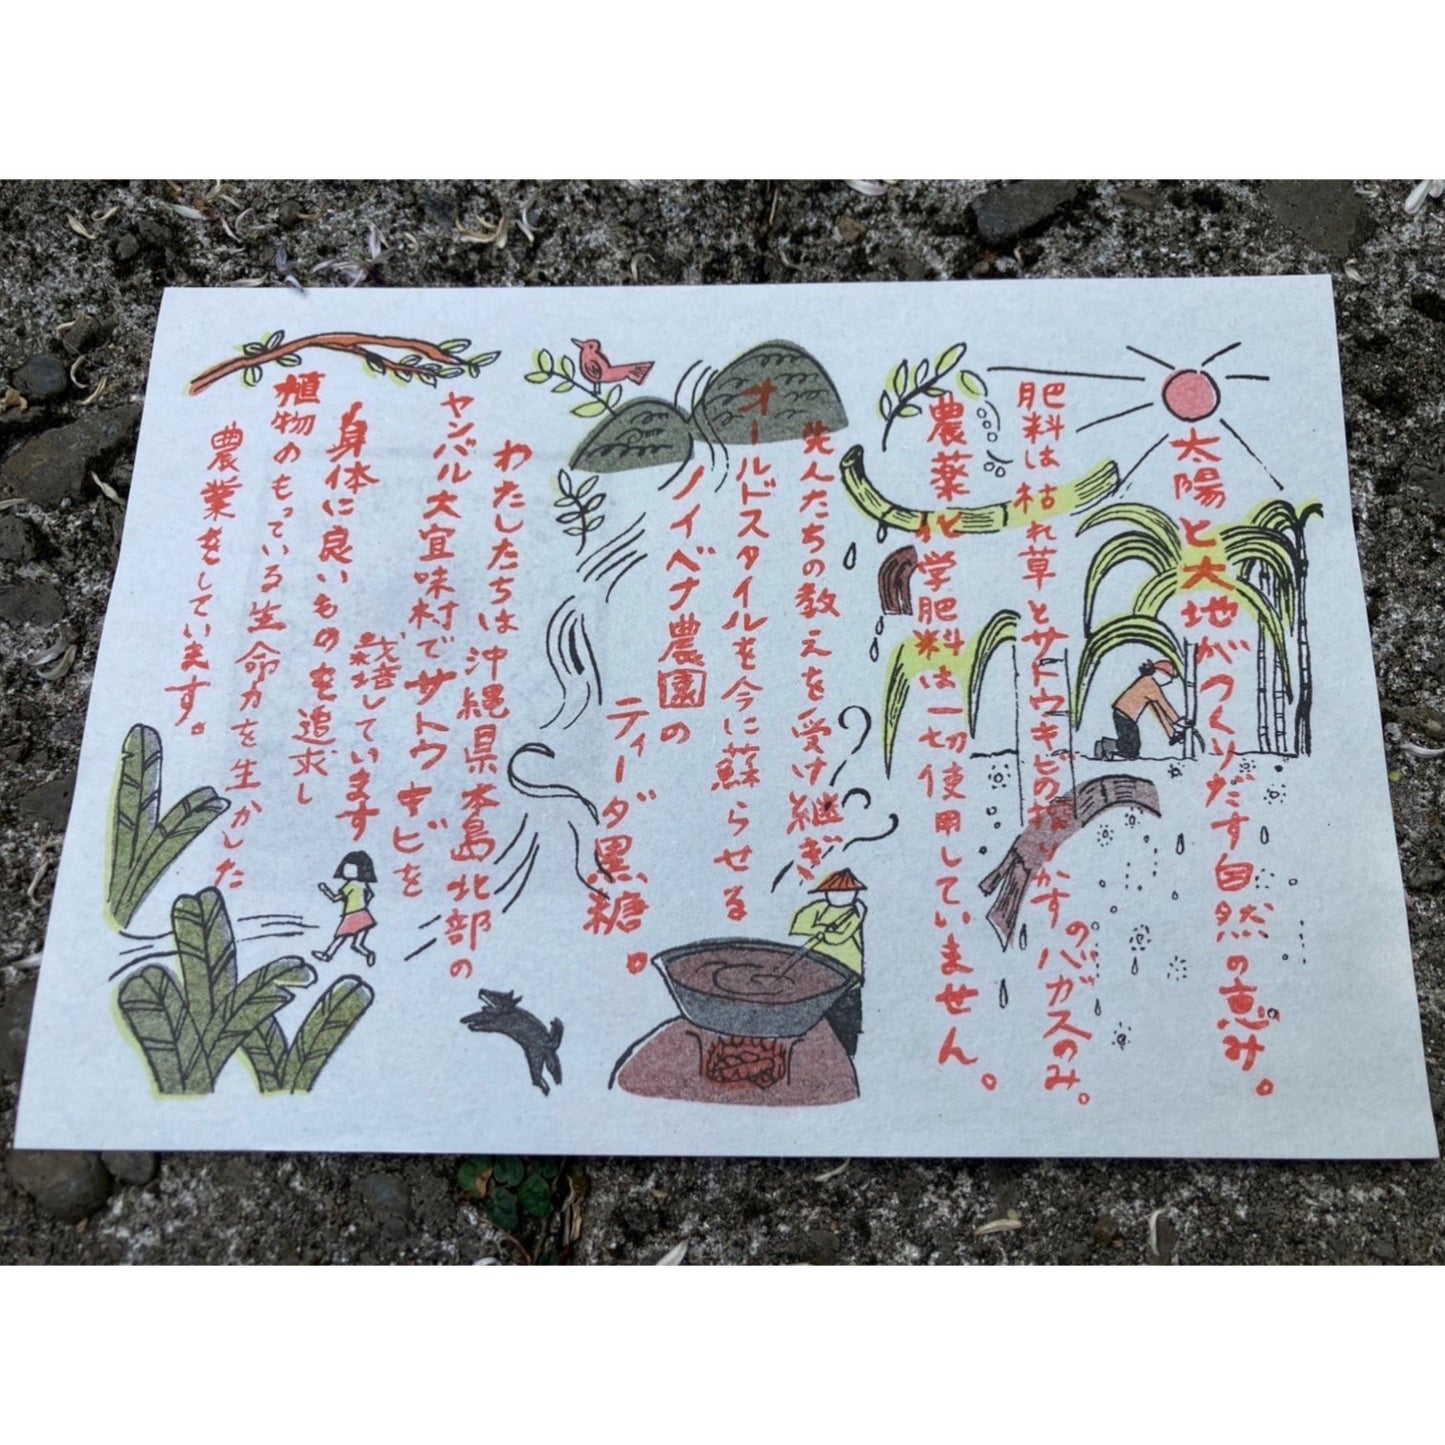 太陽と大地がつくりだす自然の恵み。
肥料は枯れ草とサトウキビの搾りかす
のバガスのみ。
農薬化学肥料は一切使用していません。
先人たちの教えを受け継ぎ
オールドスタイルを今に蘇らせる
ノイベナ農園の
ティーダ黒糖。
わたしたちは沖縄県本島北部の
ヤンバル大宜味村でサトウキビを
栽培しています
身体に良いものを追求し
植物のもっている生命力を生かした
農業をしています。